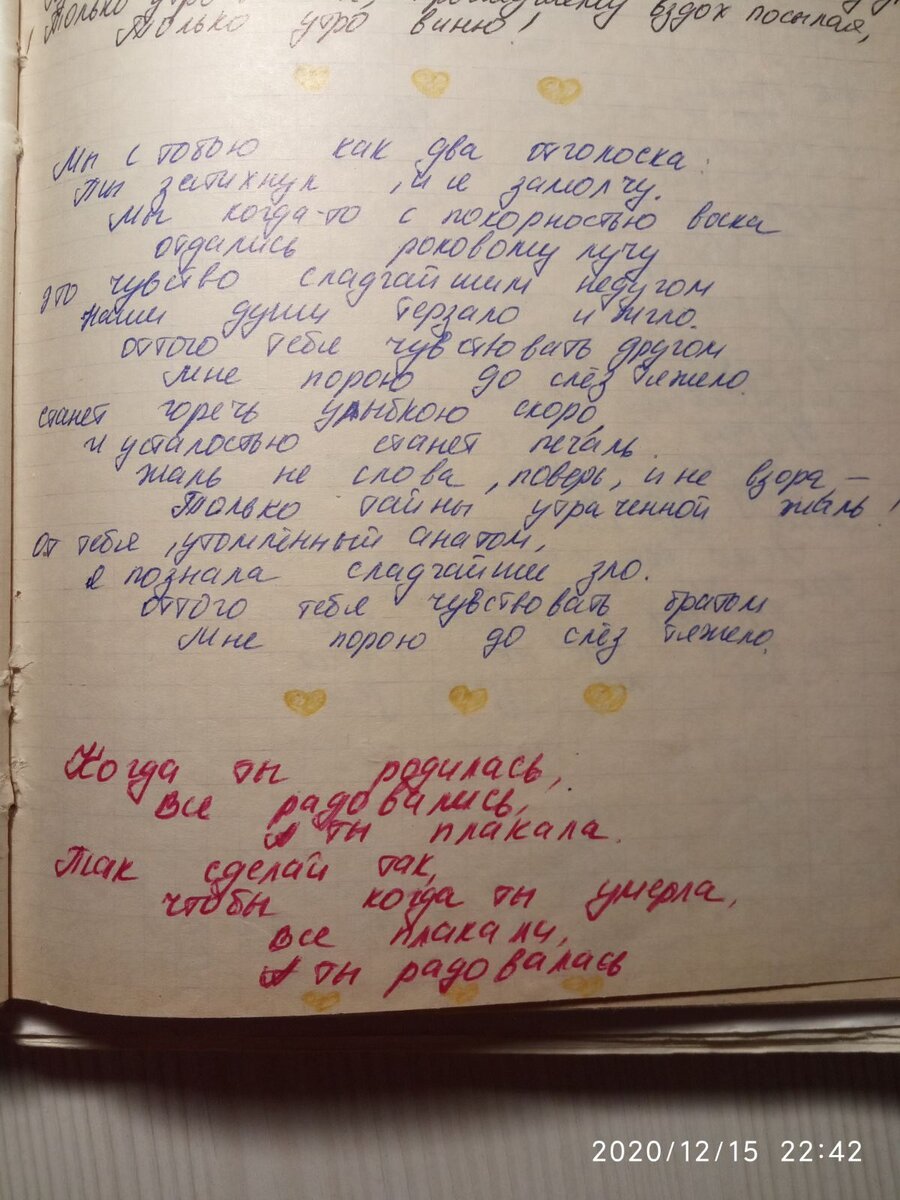 Только утро вздох посылая,
Только утро виню!
Мы с тобою как два отголоска:
Ты затихнул, и я замолчу.
Мы когда-то с покорностью воска
отдались роковому лучу
это чувство сладчайшим недугом
наши души терзало и жгло.
оттого тебя чувствовать другом
Мне порою до слёз тяжело
станет горечь улыбкою скоро,
и усталостью станет печаль.
Жаль не слова, поверь, и не взора, –
Только тайны утраченной жаль!
От тебя, утомлённый анатом,
я познала сладчайшее зло.
оттого тебя чувствовать братом
Мне порою до слёз тяжело.
Когда ты родилась,
Все радовались,
А ты плакала.
Так сделай так,
чтобы когда ты умерла,
все плакали,
А ты радовалась
2020/12/15 22:42